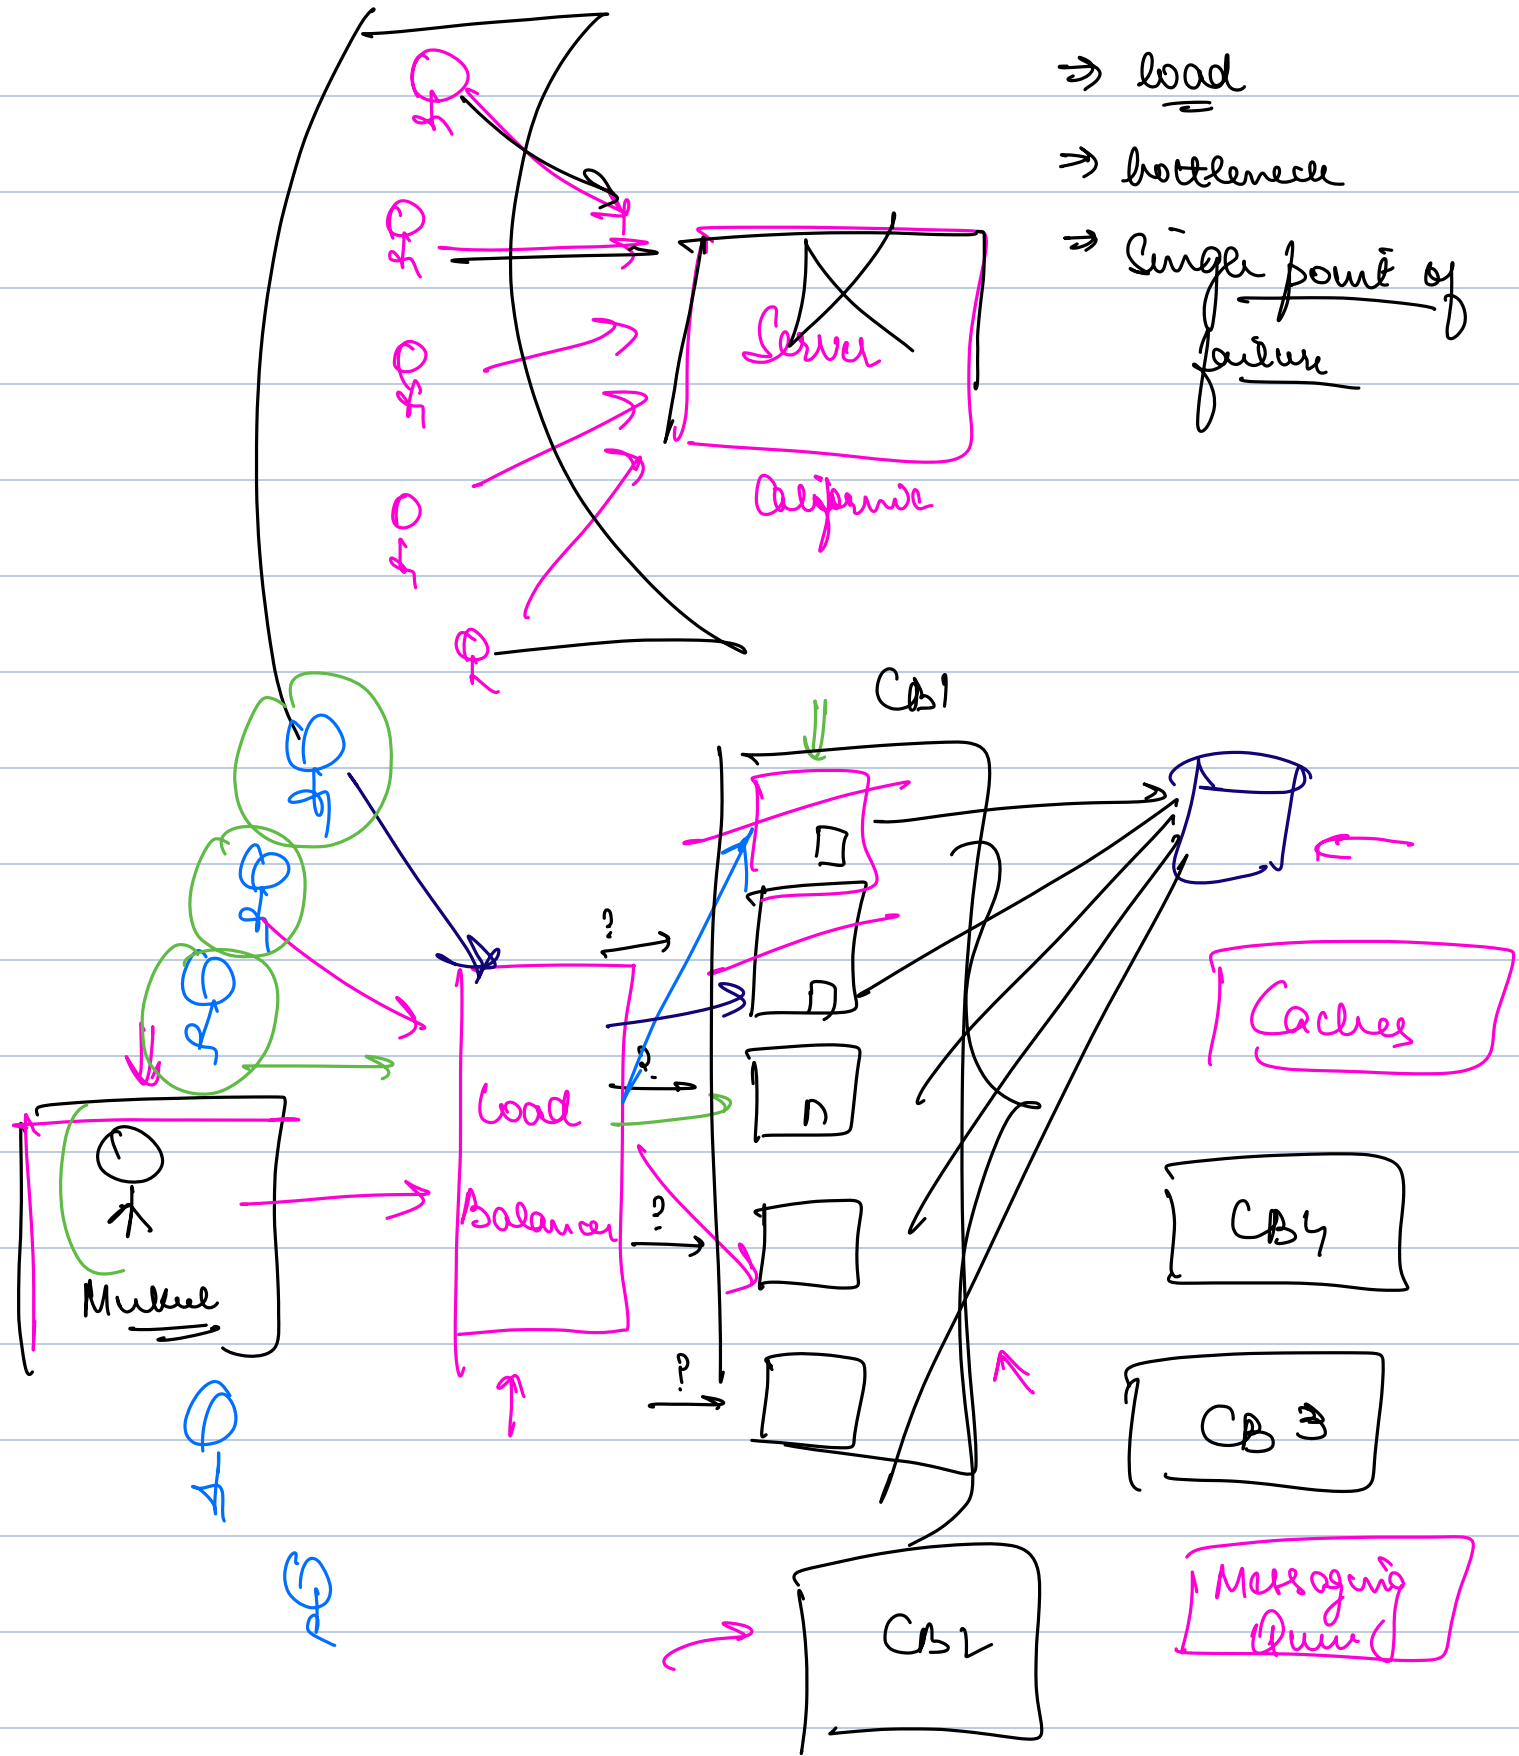 ⇒ load
⇒ bottleneck
⇒ Single point of
failure
Server
California
CB1
?
?
Load
Balancer
?
?
Mukul
Caches
CB4
CB3
CB2
Messaging
Queue